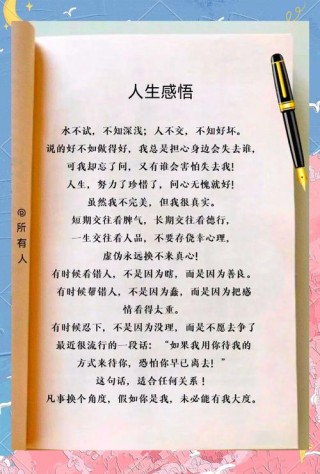 人生感悟
水不试，不知深浅；人不交，不知好坏。
说的好不如做得好，我总是担心身边会失去谁，
可我却忘了问，又有谁会害怕失去我！
人生，努力了珍惜了，问心无愧就好！
虽然我不完美，但我很真实。
短期交往看脾气，长期交往看德行，
一生交往看人品，不要存侥幸心理，
虚伪永远换不来真心！
有时候看错人，不是因为瞎，而是因为善良。
有时候帮错人，不是因为蠢，而是因为把感
情看得太重。
有时候忍下，不是因为没理，而是不愿去争了
最近很流行的一段话：“如果我用你待我的
方式来待你，恐怕你早已离去！”
这句话，适合任何关系！
凡事换个角度，假如你是我，未必能有我大度。
@所有人